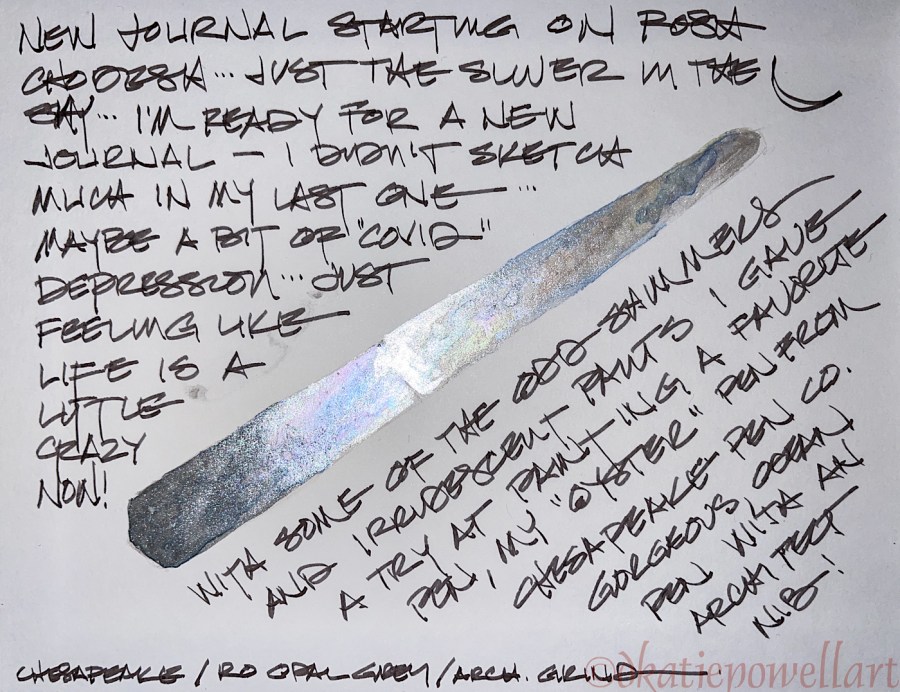 NEW JOURNAL STARTING ON ROSA
CHODESH... JUST THE SLIVER IN THE
SKY... I'M READY FOR A NEW
JOURNAL – I DIDN'T SKETCH
MUCH IN MY LAST ONE...
MAYBE A BIT OF "COVID"
DEPRESSION... JUST
FEELING LIKE
LIFE IS A
LITTLE
CRAZY
NOW!
WITH SOME OF THE ODD SHIMMERS
AND IRRIDESCENT PAINTS I GAVE
A TRY AT PAINTING A FAVORITE
PEN, MY "OYSTER" PEN FROM
CHESAPEAKE PEN CO.
GORGEOUS OCEAN
PEN WITH AN
ARCHITECT
NIB!
CHESAPEAKE / RO OPAL GREY / ARCH. GRIND
©dkatiepowellart